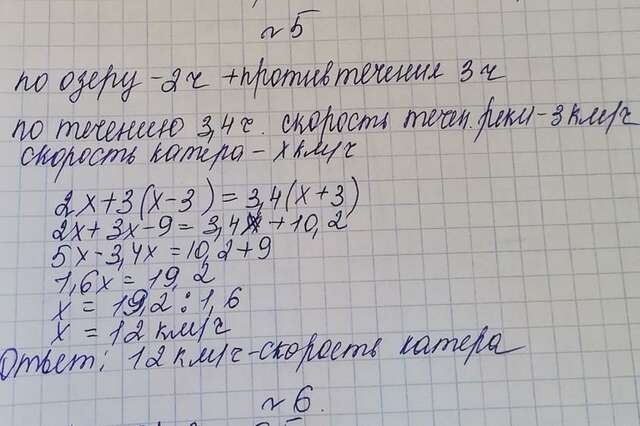 №5
по озеру - 2ч + против течения 3ч
по течению 3,4ч. скорость течен. реки - 3 км/ч
скорость катера - х км/ч
2х+3(х-3)=3,4(х+3)
2х+3х-9=3,4х+10,2
5х-3,4х=10,2+9
1,6х=19,2
х=19,2:1,6
х=12 км/ч
Ответ: 12 км/ч - скорость катера
№6.